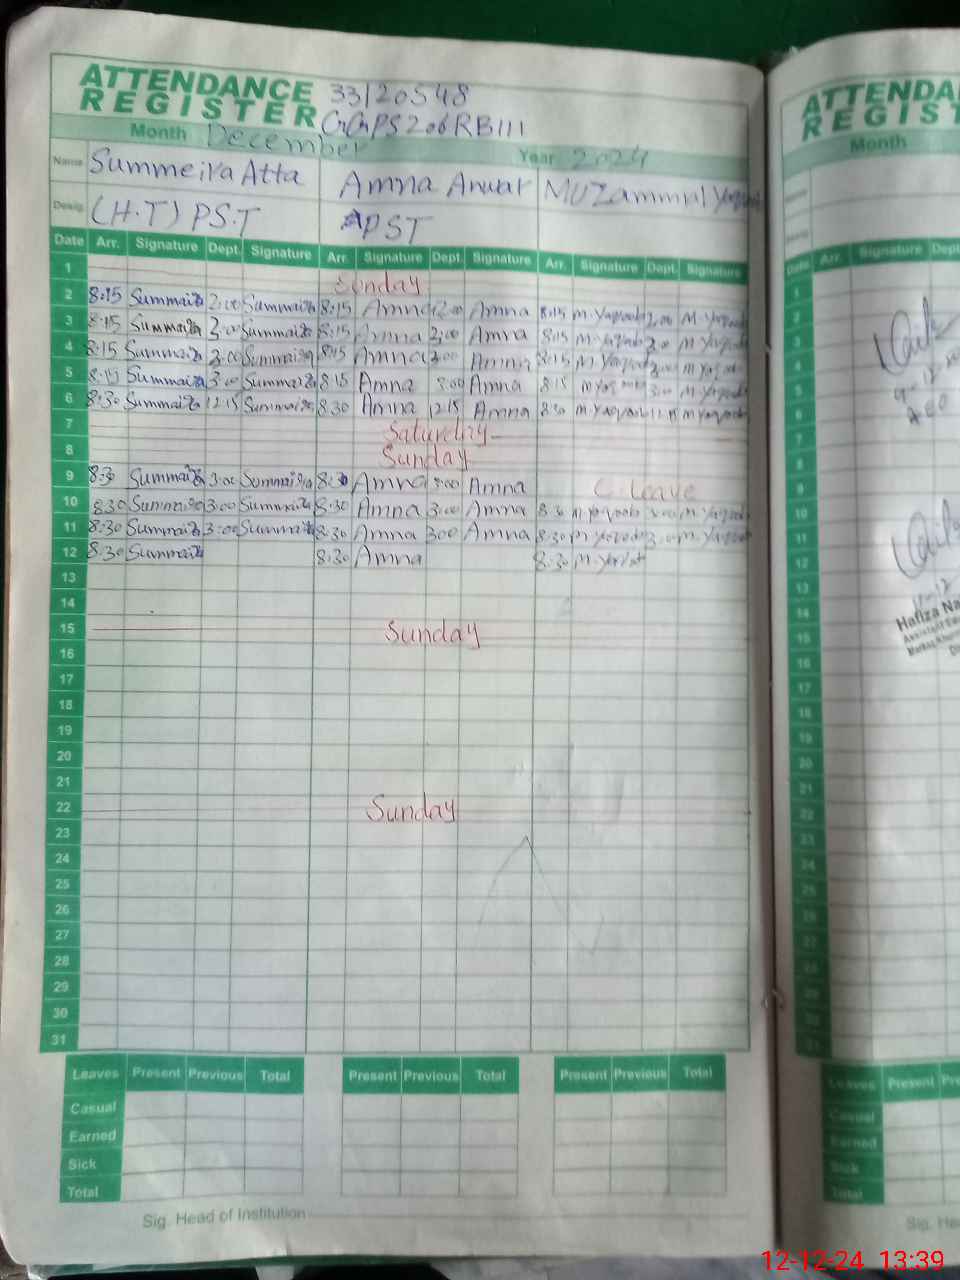 ATTENDANCE
REGISTER
33120548
Month December
Year 2024
Name Summeira Atta Amna Anwar Muzammal Yaqoob
Desig. (H.T) P.S.T PST
Date Arr. Signature Dept. Signature Arr. Signature Dept. Signature Arr. Signature Dept. Signature
1 Sunday
2 8:15 Summaira 3:00 Summaira 8:15 Amna 2:00 Amna 8:15 M.Yaqoob 3:00 M.Yaqoob
3 8:15 Summaira 3:00 Summaira 8:15 Amna 3:00 Amna 8:15 M.Yaqoob 3:00 M.Yaqoob
4 8:15 Summaira 3:00 Summaira 8:15 Amna 3:00 Amna 8:15 M.Yaqoob 3:00 M.Yaqoob
5 8:15 Summaira 3:00 Summaira 8:15 Amna 3:00 Amna 8:15 M.Yaqoob 3:00 M.Yaqoob
6 8:30 Summaira 12:15 Summaira 8:30 Amna 12:15 Amna 8:30 M.Yaqoob M.Yaqoob
7 Saturday
8 Sunday
9 8:30 Summaira 3:00 Summaira 8:30 Amna 3:00 Amna C.Leave
10 8:30 Summaira 3:00 Summaira 8:30 Amna 3:00 Amna 8:30 M.Yaqoob 3:00 M.Yaqoob
11 8:30 Summaira 3:00 Summaira 8:30 Amna 3:00 Amna 8:30 M.Yaqoob 3:00 M.Yaqoob
12 8:30 Summaira 8:30 Amna 8:30 M.Yaqoob
13
14
15 Sunday
16
17
18
19
20
21
22 Sunday
23
24
25
26
27
28
29
30
31
Leaves Present Previous Total Present Previous Total Present Previous Total
Casual
Earned
Sick
Total
Sig. Head of Institution
ATTENDA
REGIST
Month
Date Arr. Signature Dept
Hafiza Na
Leaves Present Pre
Casual
Earned
Sick
Total
Sig. He
12-12-24 13:39